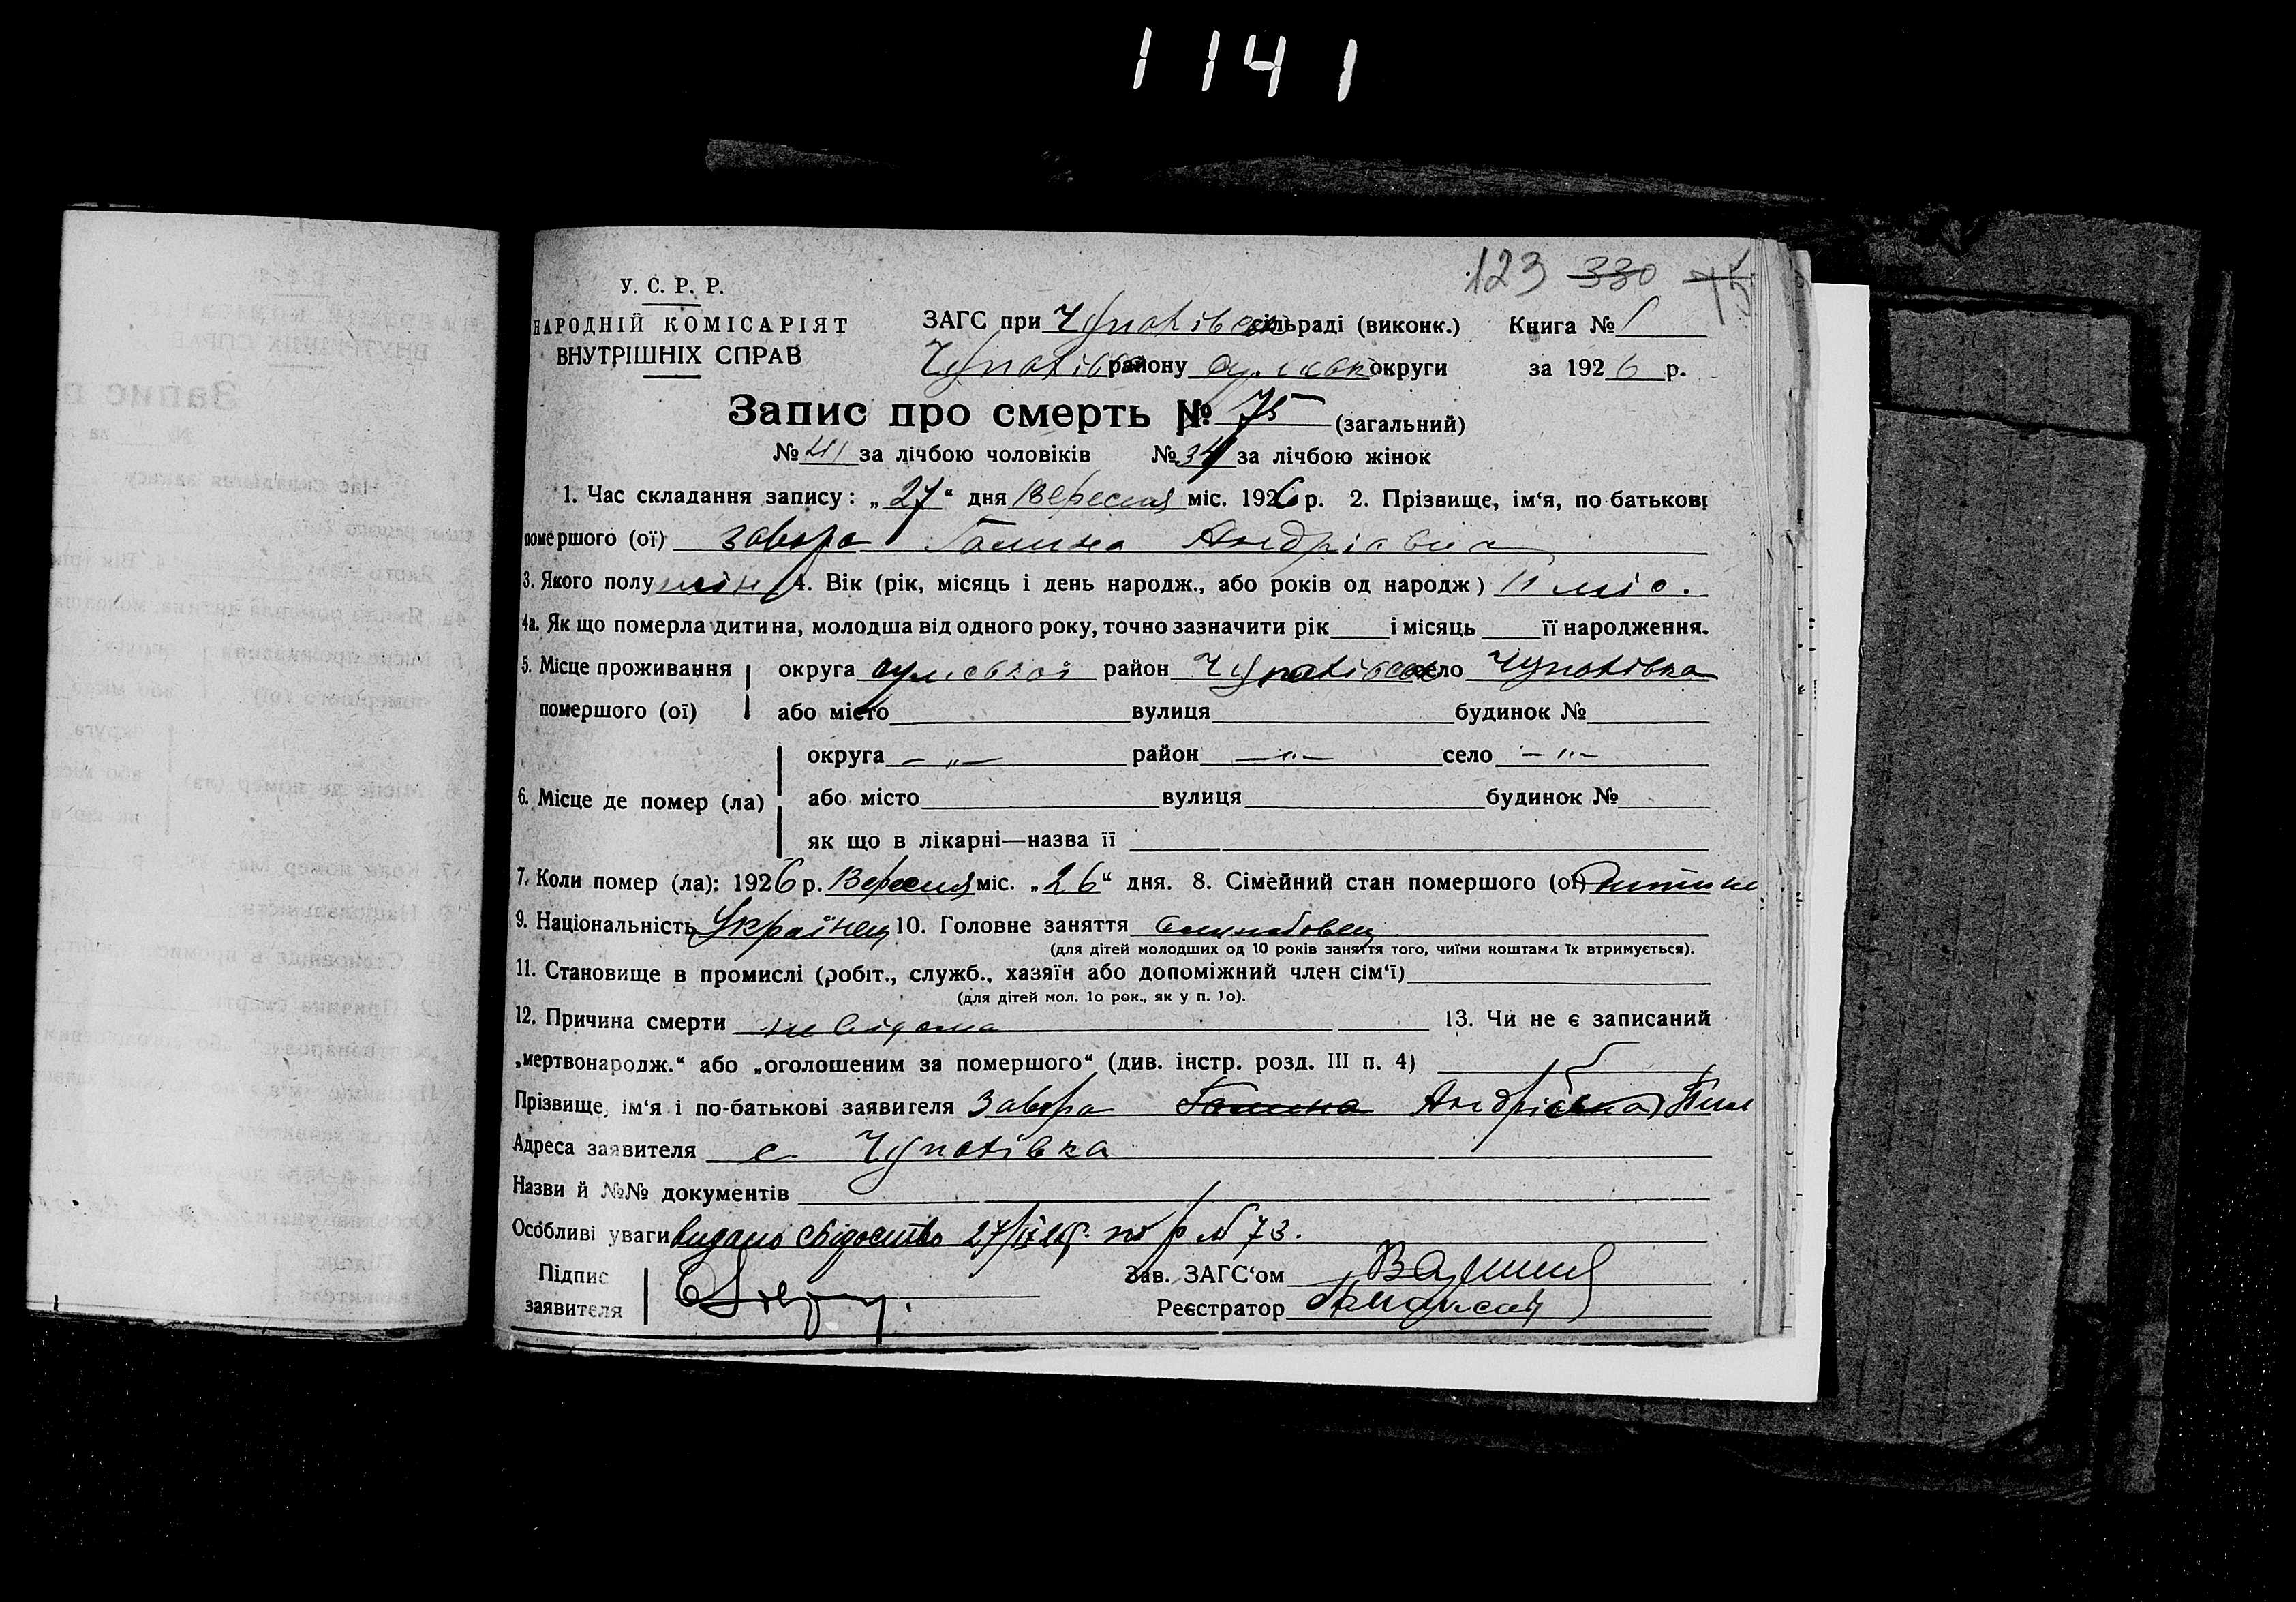 1141
123 330 75
У. С. Р. Р.
НАРОДНІЙ КОМІСАРІЯТ
ВНУТРІШНІХ СПРАВ
ЗАГС при Чупахівськ сільраді (виконк.) Книга №
Чупахівськ району сумськ округи за 1926 р.
Запис про смерть № 75 (загальний)
№ 41 за лічбою чоловіків № 34 за лічбою жінок
1. Час складання запису: „27“ дня Вересня міс. 1926 р. 2. Прізвище, ім‘я, по-батькові
помершого (ої) Завора Галина Андріївна
3. Якого полу жін 4. Вік (рік, місяць і день народж., або років од народж) 11 міс.
4а. Як що померла дитина, молодша від одного року, точно зазначити рік і місяць її народження.
5. Місце проживання округа сумської район Чупахівськ село Чупахівка
помершого (ої) або місто вулиця будинок №
округа —„— район —„— село —„—
6. Місце де помер (ла) або місто вулиця будинок №
як що в лікарні—назва її
7. Коли помер (ла): 1926 р. Вересня міс. „26“ дня. 8. Сімейний стан помершого (ої) дитина
9. Національність Українец 10. Головне заняття
(для дітей молодших од 10 років заняття того, чиїми коштами їх втримується).
11. Становище в промислі (робіт., служб., хазяїн або допоміжний член сім‘ї)
(для дітей мол. 1о рок., як у п. 1о).
12. Причина смерти не відома 13. Чи не є записаний
„мертвонародж.“ або „оголошеним за помершого“ (див. інстр. розд. III п. 4)
Прізвище, ім‘я і по-батькові заявителя Завора Галина Андрій
Адреса заявителя с Чупахівка
Назви й №№ документів
Особливі уваги видано свідоцтво 27/IX 26р. по р № 73.
Підпис Зав. ЗАГС‘ом
заявителя Реєстратор